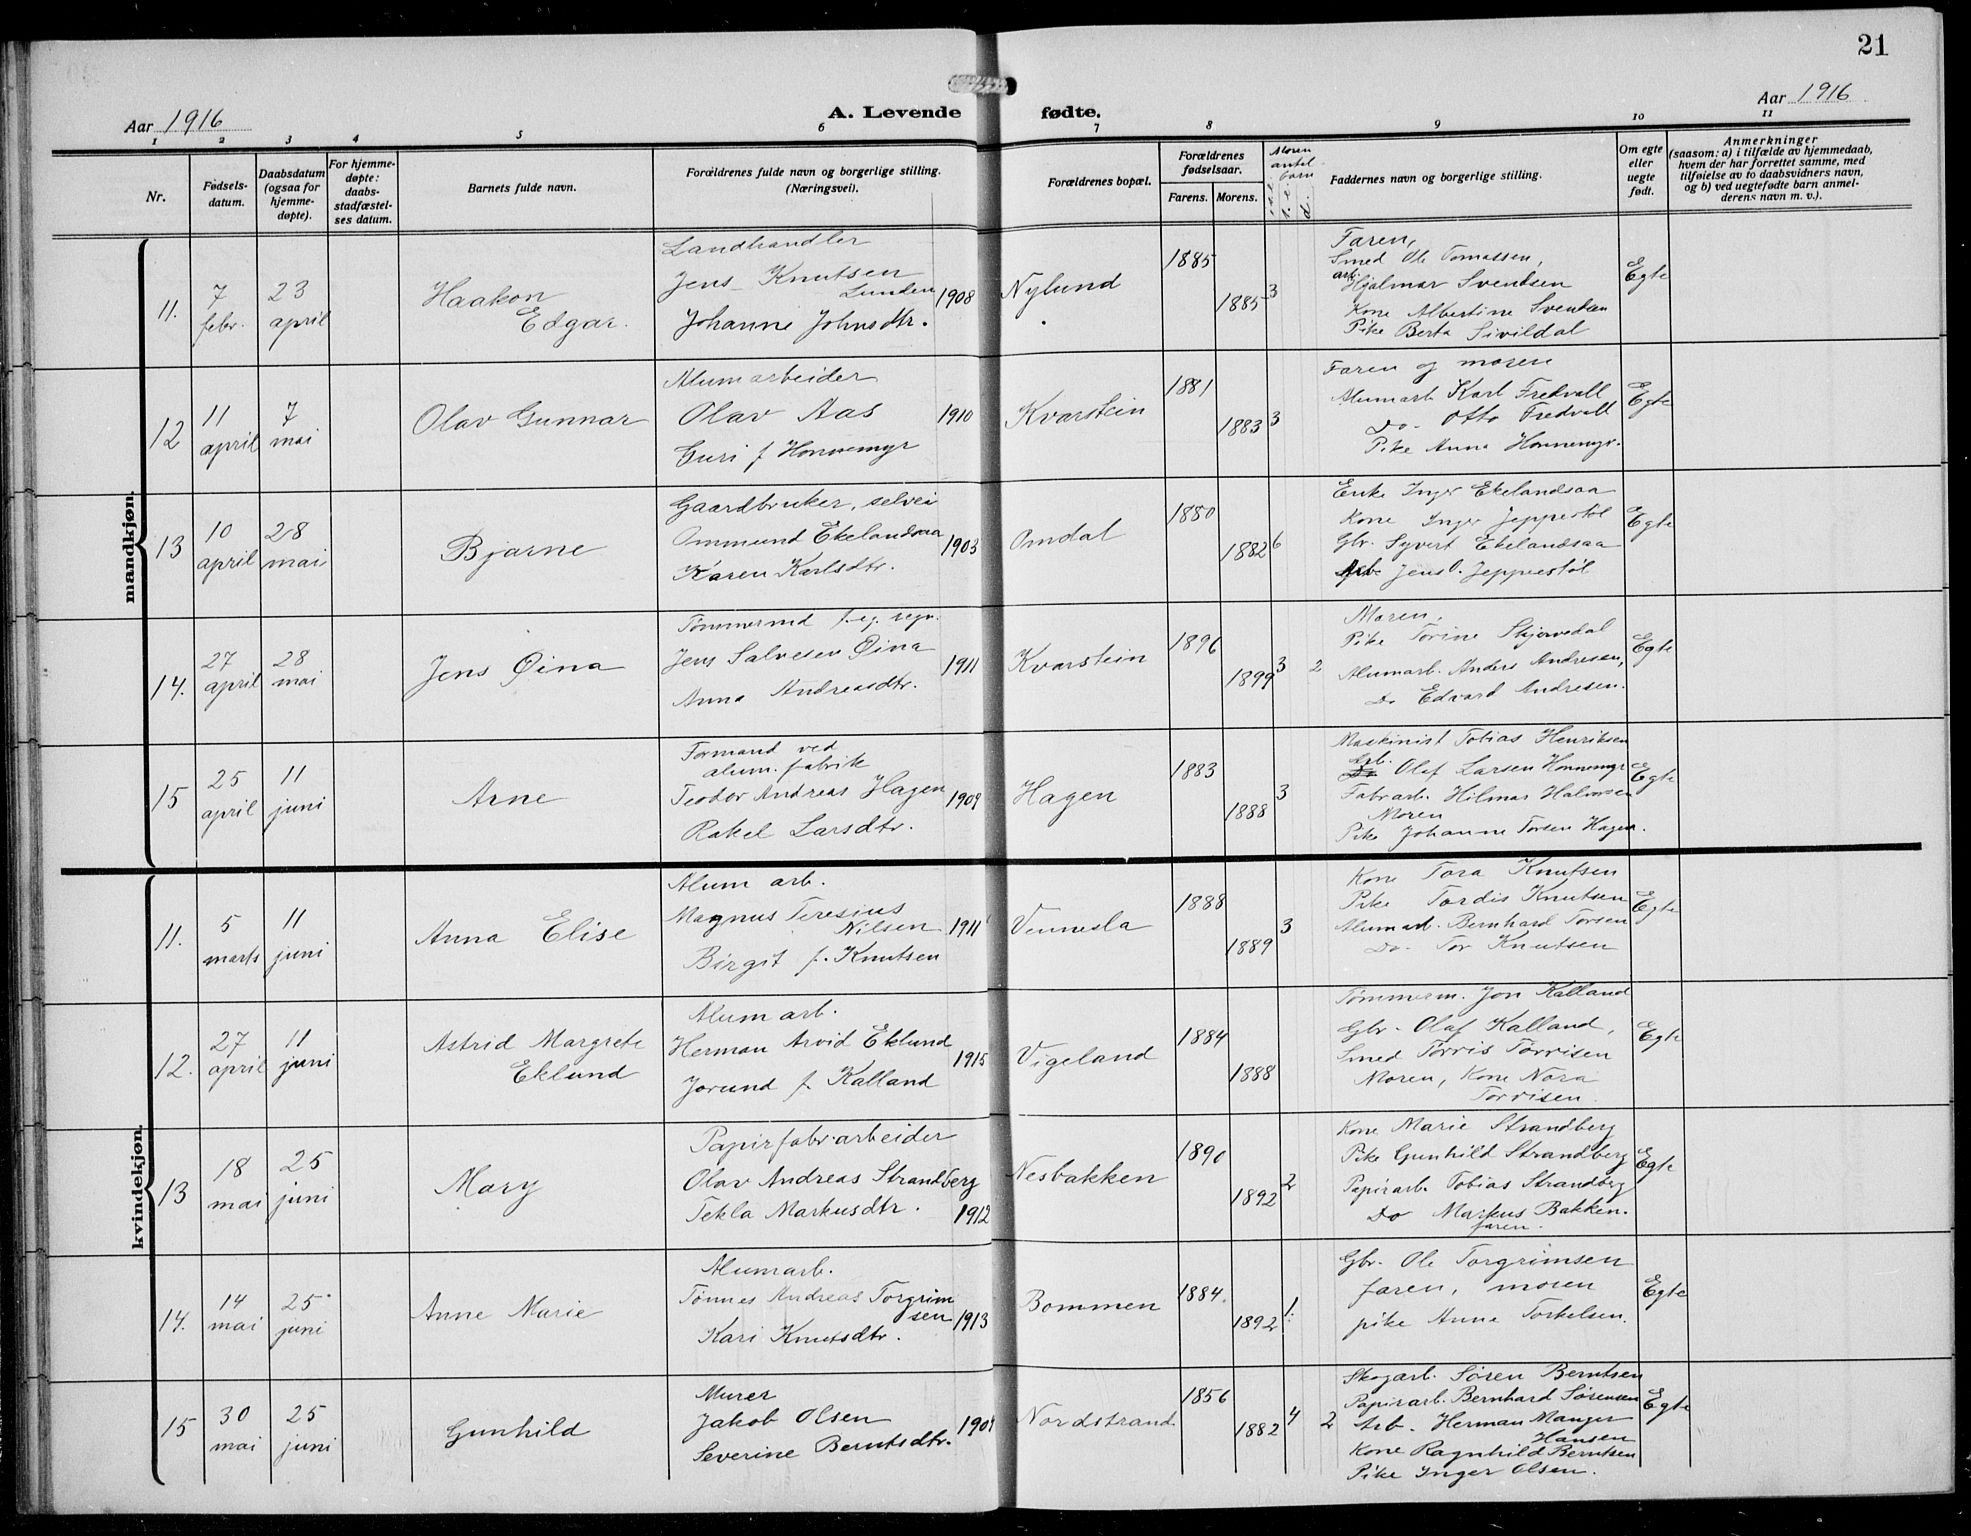 21
Aar 1916
A. Levende fødte.
Aar 1916
1 2 3 4 5 6 7 8 9 10 11
Nr.
Fødsels-
datum.
Daabsdatum
(ogsaa for
hjemme-
døpte).
For hjemme-
døpte:
daabs-
stadfæstel-
ses datum.
Barnets fulde navn.
Forældrenes fulde navn og borgerlige stilling.
(Næringsvei).
Forældrenes bopæl.
Forældrenes
fødselsaar.
Farens. Morens.
Moren
antal
barn
Faddernes navn og borgerlige stilling.
Om egte
eller
uegte
født.
Anmerkninger
(saasom: a) i tilfælde av hjemmedaab,
hvem der har forrettet samme, med
tilføielse av to daabsvidners navn,
og b) ved uegtefødte barn anmel-
derens navn m. v.).
mandkjøn.
11.
7
febr.
23
april
Haakon
Edgar.
Landhandler
Jens Knutsen
Lunden
Johanne Johnsdtr.
1908
Nylund
1885
1885
3
Faren,
Smed Ole Tomassen,
arb. Hjalmar Svendsen
Kone Albertine Svendsen
Pike Berta Sivildal
Egte
12
11
april
7
mai
Olav Gunnar
Alumarbeider
Olav Aas
Guri f. Honnemyr
1910
Kvarstein
1881
1883
3
Faren og moren
Alumarb Karl Fredvall
Do- Otto Fredvall
Pike Anna Honnemyr.
Egte
13
10
april
28
mai
Bjarne
Gaardbruker, selvei
Ommund Ekelandsaa
Karen Karlsdtr.
1903
Omdal
1880
1882
6
Enke Inger Ekelandsaa
Kone Inger Jeppestøl
Gbr. Syvert Ekelandsaa
Arb. Jens O. Jeppestøl
Egte
14.
27
april
28
mai
Jens Øina
Tømmermd f. eg. regn.
Jens Salvesen Øina
Anna Andreasdtr.
1911
Kvarstein
1896
1899
3 2
Moren,
Pike Torine Skjervedal
Alumarb. Anders Andresen,
Do Edvard Andresen.
Egte
15
25
april
11
juni
Arne
Formand ved
alum. fabrik
Teodor Andreas Hagen
Rakel Larsdtr.
1909
Hagen
1883
1888
3
Maskinist Tobias Henriksen
Arb. Olaf Larsen Honnemyr
Fabrarb. Hilmar Halvorsen
Moren
Pike Johanne Torsen Hagen.
Egte
kvindekjøn.
11.
5
marts
11
juni
Anna Elise
Alum arb.
Magnus Teresius
Nilsen
Birgit f. Knutsen
1911
Vennesla
1888
1889
3
Kone Tora Knutsen
Pike Tordis Knutsen
Alumarb. Bernhard Torsen
Do- Tor Knutsen
Egte
12.
27
april
11
juni
Astrid Margrete
Eklund
Alumarb.
Herman Arvid Eklund
Jorund f. Kalland
1915
Vigeland
1884
1888
Tømmerm. Jon Kalland
Gbr- Olaf Kalland,
Smed Torris Torrisen
Moren, Kone Nora
Torrisen.
Egte
13
18
mai
25
juni
Mary
Papirfabr.arbeider
Olav Andreas Strandberg
Tekla Markusdtr.
1912
Nesbakken
1890
1892
2
Kone Marie Strandberg
Pike Gunhild Strandberg
Papirarb. Tobias Strandberg
Do Markus Bakken.
faren.
Egte
14.
14
mai
25
juni
Anne Marie
Alumarb.
Tønnes Andreas Torgrim
sen
Kari Knutsdtr.
1913
Bommen
1884.
1892
1.
Gbr. Ole Torgrimsen
faren, moren
pike Anna Torkelsen.
Egte
15
30
mai
25
juni
Gunhild
Murer
Jakob Olsen
Severine Berntsdtr.
Nordstrand
1856
1882
4 2
Skogarb. Søren Berntsen
Papirarb. Bernhard Sørensen
Arb. Herman Manger
Hansen
Kone Ragnhild Berntsen
Pike Inger Olsen.
Egte